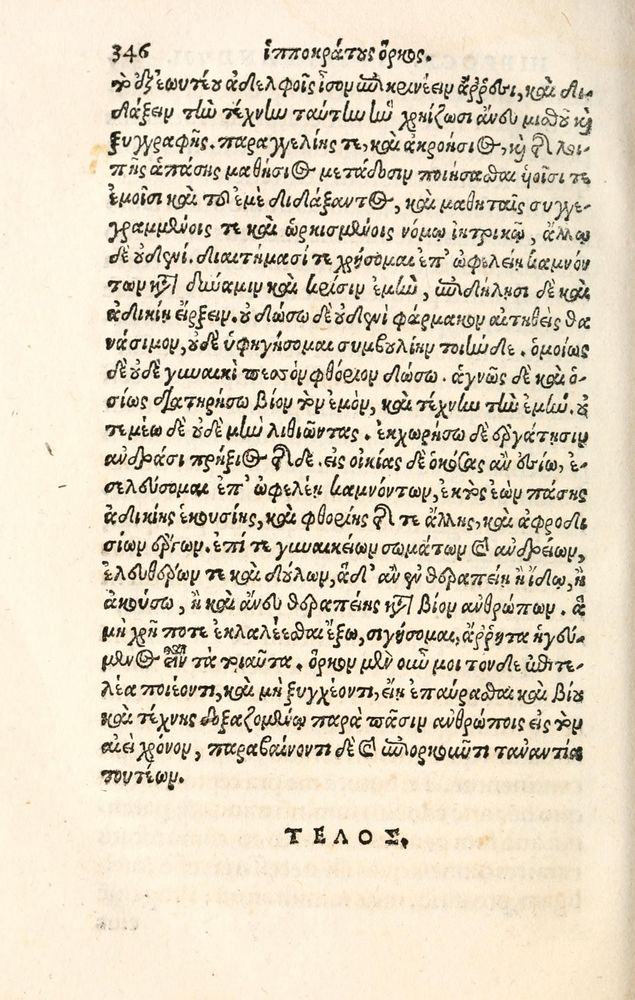 346 ἱπποκράτους ὅρκος.
τὸ ἐξ ἑωυτέου ἀδελφοῖς ἶσον ἐπικρινέειν ἄῤῥεσι, καὶ δι-
δάξειν τὴν τέχνην ταύτην ἢν χρηίζωσι ἄνευ μισθοῦ καὶ
ξυγγραφῆς. παραγγελίης τε, καὶ ἀκροήσιος, καὶ τῆς λοι-
πῆς ἁπάσης μαθήσιος μετάδοσιν ποιήσασθαι υἱοῖσί τε
ἐμοῖσι καὶ τοῦ ἐμὲ διδάξαντος, καὶ μαθηταῖς συγγε-
γραμμένοις τε καὶ ὡρκισμένοις νόμῳ ἰητρικῷ, ἄλλῳ
δὲ οὐδενί. διαιτήμασί τε χρήσομαι ἐπ' ὠφελείῃ καμνόν
των κατὰ δύναμιν καὶ κρίσιν ἐμὴν, ἐπὶ δηλήσι δὲ καὶ
ἀδικίῃ εἴρξειν. οὐ δώσω δὲ οὐδενὶ φάρμακον αἰτηθεὶς θα
νάσιμον, οὐδὲ ὑφηγήσομαι συμβουλίην τοιήνδε. ὁμοίως
δὲ οὐδὲ γυναικὶ πεσσὸν φθόριον δώσω. ἁγνῶς δὲ καὶ ὁ-
σίως διατηρήσω βίον τὸν ἐμὸν, καὶ τέχνην τὴν ἐμήν. οὐ
τεμέω δὲ οὐδὲ μὴν λιθιῶντας. ἐκχωρήσω δὲ ἐργάτησιν
ἀνδράσι πρήξιος τῆσδε. εἰς οἰκίας δὲ ὁκόσας ἂν ἐσίω, ἐ-
σελεύσομαι ἐπ' ὠφελείῃ καμνόντων, ἐκτὸς ἐὼν πάσης
ἀδικίης ἑκουσίης, καὶ φθορίης τῆς τε ἄλλης, καὶ ἀφροδι
σίων ἔργων. ἐπί τε γυναικείων σωμάτων καὶ ἀνδρείων,
ἐλευθέρων τε καὶ δούλων, ἃ δ' ἂν ἐν θεραπείῃ ἢ ἴδω, ἢ
ἀκούσω, ἢ καὶ ἄνευ θεραπείης κατὰ βίον ἀνθρώπων. ἃ
μὴ χρή ποτε ἐκλαλέεσθαι ἔξω, σιγήσομαι, ἄῤῥητα ἡγεύ-
μενος εἶναι τὰ τοιαῦτα. ὅρκον μὲν οὖν μοι τόνδε ἐπιτε-
λέα ποιέοντι, καὶ μὴ ξυγχέοντι, εἴη ἐπαύρασθαι καὶ βίου
καὶ τέχνης δοξαζομένῳ παρὰ πᾶσιν ἀνθρώποις εἰς τὸν
αἰεὶ χρόνον, παραβαίνοντι δὲ καὶ ἐπιορκοῦντι τἀναντία
τουτέων.
ΤΕΛΟΣ.